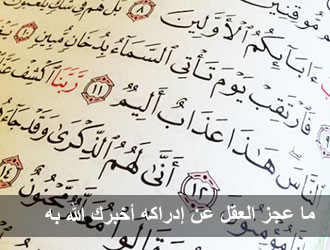 مُّوقِنِينَ
ءَابَآئِكُمُ ٱلْأَوَّلِينَ ٨ بَلْ هُمْ فِى شَكٍّ
فَٱرْتَقِبْ يَوْمَ تَأْتِى ٱلسَّمَآءُ بِدُخَانٍ مُّبِينٍ ١٠
ٱلنَّاسَ هَٰذَا عَذَابٌ أَلِيمٌ ١١ رَّبَّنَا ٱكْشِفْ
١٢ أَنَّىٰ لَهُمُ ٱلذِّكْرَىٰ وَقَدْ جَآءَهُمْ
مَّجْنُونٌ ١٤
ما عجز العقل عن إدراكه أخبرك الله به